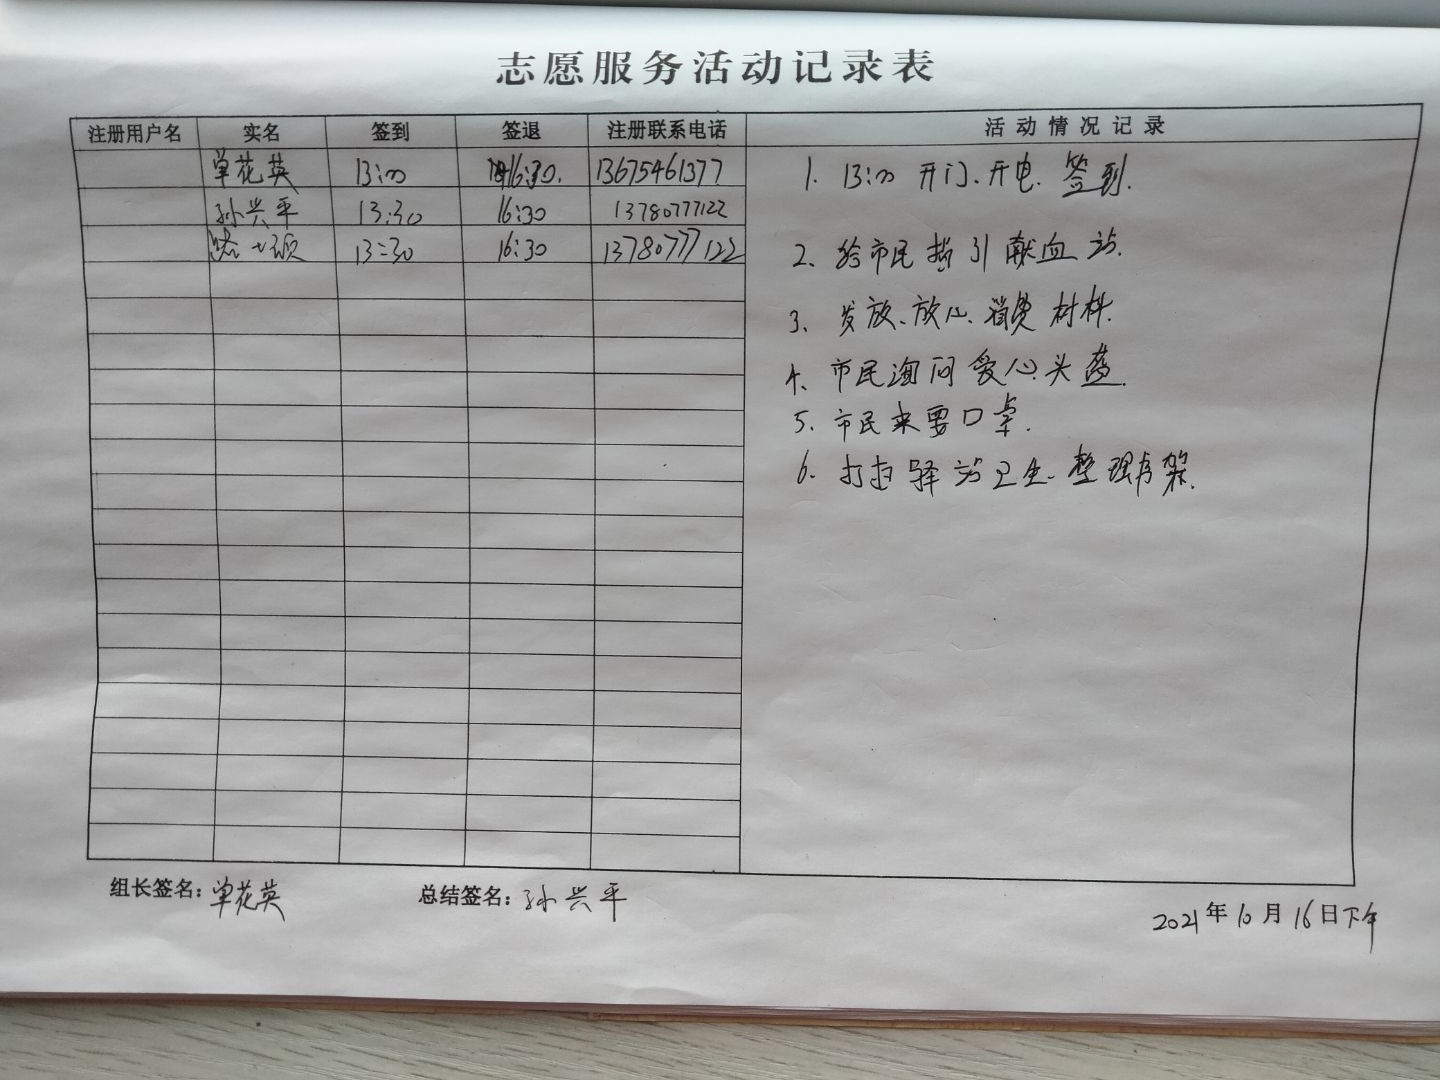 志愿服务活动记录表
注册用户名 实名 签到 签退 注册联系电话 活动情况记录
单花英 13:00 16:30. 13675461377
孙兴平 13:30 16:30 13780777122
13:30 16:30 13780777122
1. 13:00 开门、开电、签到.
2、给市民指引献血站.
3、发放、放心、消费材料.
4、市民询问爱心头盔.
5、市民来要口罩.
6. 打扫驿站卫生、整理书架.
组长签名：单花英 总结签名：孙兴平
2021年10月16日下午